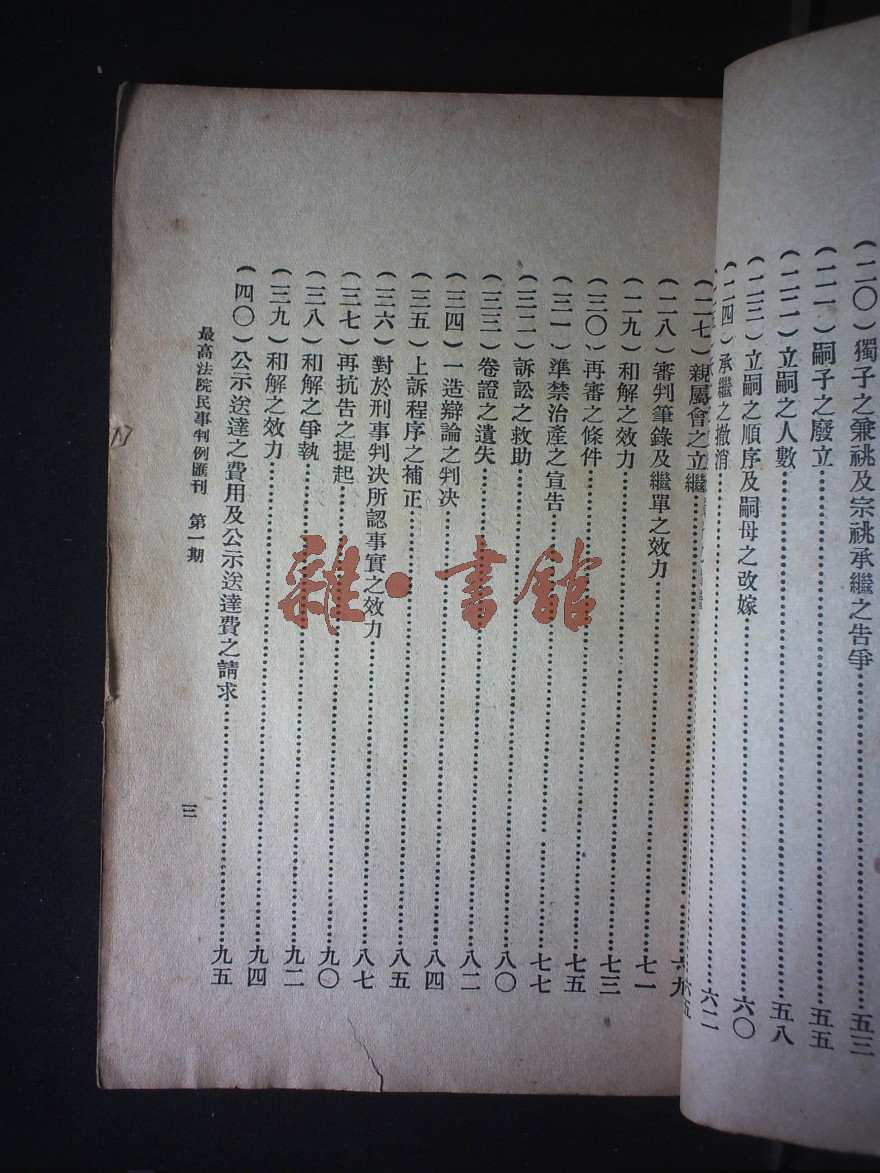 (二〇)獨子之兼祧及宗祧承繼之告爭…………五三
(二一)嗣子之廢立…………五五
(二二)立嗣之人數…………五八
(二三)立嗣之順序及嗣母之改嫁…………六〇
(二四)承繼之撤消…………六二
六五
(二七)親屬會之立繼…………六九
(二八)審判筆錄及繼單之效力…………七一
(二九)和解之效力…………七三
(三〇)再審之條件…………七五
(三一)準禁治產之宣告…………七七
(三二)訴訟之救助…………八〇
(三三)卷證之遺失…………八二
(三四)一造辯論之判决…………八四
(三五)上訴程序之補正…………八五
(三六)對於刑事判决所認事實之效力…………八七
(三七)再抗告之提起…………九〇
(三八)和解之爭執…………九二
(三九)和解之效力…………九四
(四〇)公示送達之費用及公示送達費之請求…………九五
最高法院民事判例匯刊 第一期
三
雜·書館